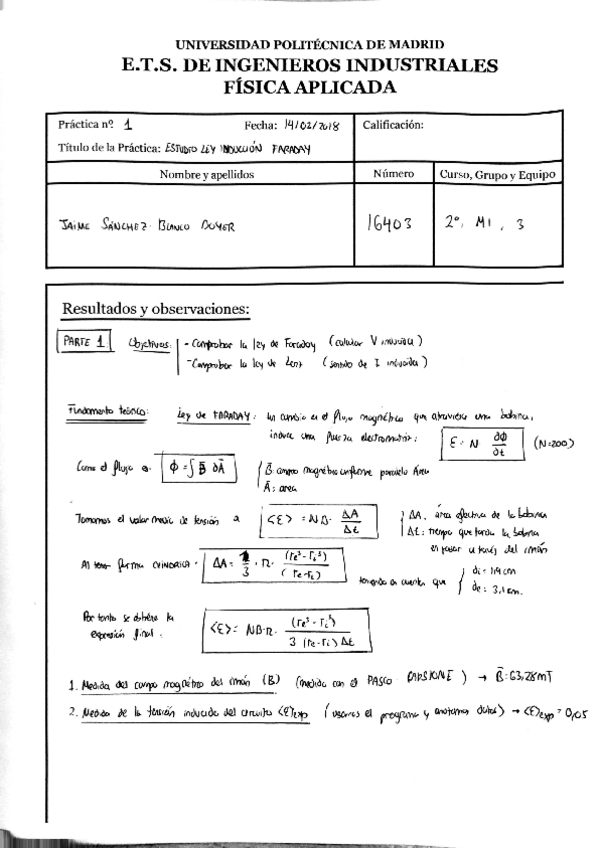 UNIVERSIDAD POLITÉCNICA DE MADRID
E.T.S. DE INGENIEROS INDUSTRIALES
FÍSICA APLICADA
Práctica nº 1 Fecha: 14/02/2018 Calificación:
Título de la Práctica: ESTUDIO LEY INDUCCIÓN FARADAY
Nombre y apellidos Número Curso, Grupo y Equipo
JAIME SÁNCHEZ-BLANCO 16403 2º, M1, 3
Resultados y observaciones:
PARTE 1 Objetivos: - Comprobar la ley de Faraday (calcular V inducida)
- Comprobar la ley de Lenz (sentido de I inducida)
Fundamento teórico: Ley de FARADAY: un cambio en el flujo magnético que atraviesa una bobina,
induce una fuerza electromotriz: ε = N ∂Φ/∂t (N=200)
Como el flujo es Φ = ∫ B̄ ∂Ā { B̄: campo magnético uniforme paralelo Área
Ā: area
Tomamos el valor medio de tensión a <ε> = N·B· ΔA/Δt { ΔA: área efectiva de la bobina
Δt: tiempo que tarda la bobina
en pasar a través del imán
Al tener forma cilíndrica: ΔA = 1/3 · π · (re³ - ri³)/(re - ri) teniendo en cuenta que { di = 1,9 cm
de = 3,1 cm.
Por tanto se obtiene la
expresión final: <ε> = NB·π · (re³ - ri³)/3 (re - ri) Δt
1. Medida del campo magnético del imán (B) (medido con el PASCO CAPSTONE) → B̄ = 63,28mT
2. Medida de la tensión inducida del circuito <ε>exp (usamos el programa y anotamos datos) → <ε>exp = 0,05